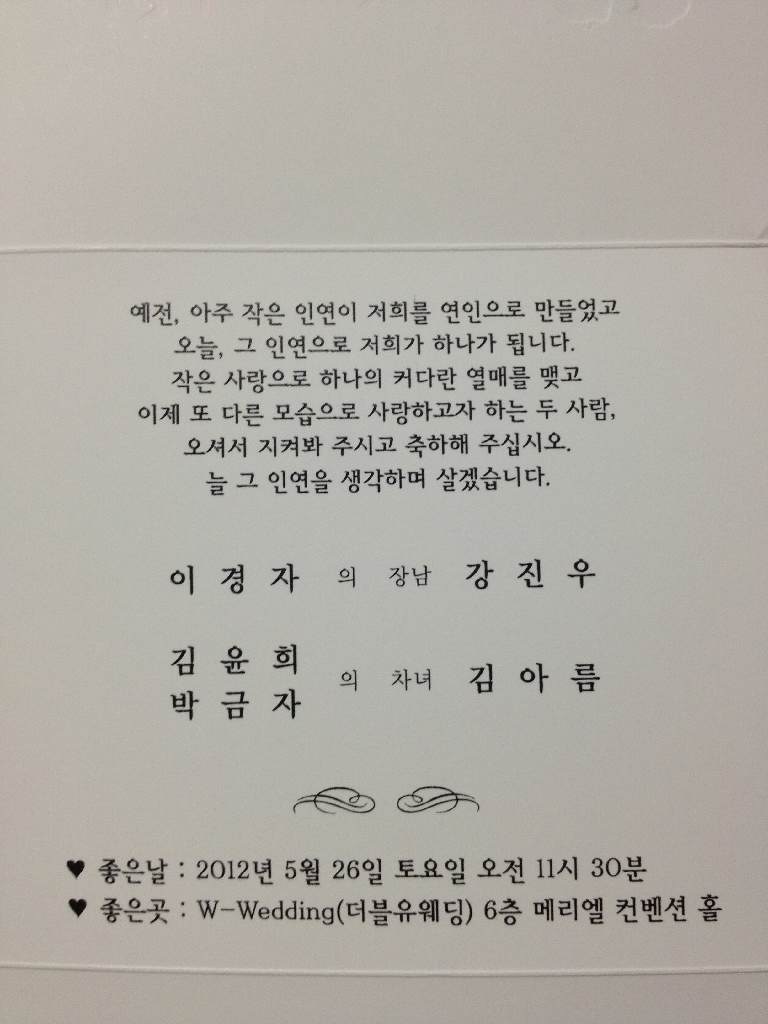 예전, 아주 작은 인연이 저희를 연인으로 만들었고
오늘, 그 인연으로 저희가 하나가 됩니다.
작은 사랑으로 하나의 커다란 열매를 맺고
이제 또 다른 모습으로 사랑하고자 하는 두 사람,
오셔서 지켜봐 주시고 축하해 주십시오.
늘 그 인연을 생각하며 살겠습니다.
이경자 의 장남 강진우
김윤희
박금자 의 차녀 김아름
♥ 좋은날 : 2012년 5월 26일 토요일 오전 11시 30분
♥ 좋은곳 : W-Wedding(더블유웨딩) 6층 메리엘 컨벤션 홀